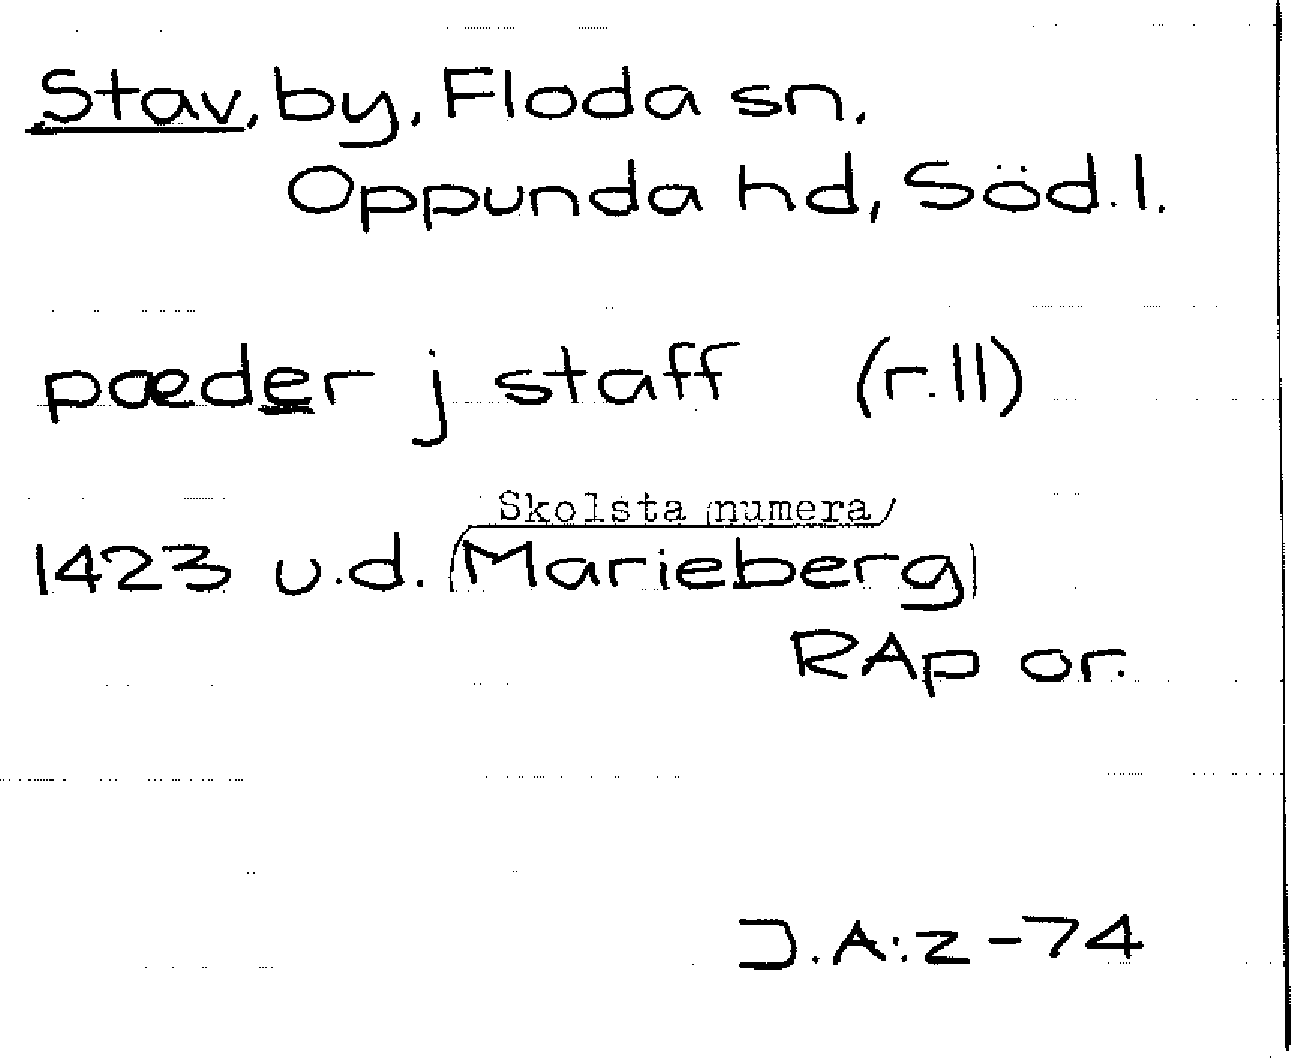 Stav, by, Floda sn,
Oppunda hd, Söd.l.
pæder j staff (r.11)
Skolsta numera
1423 u.d. (Marieberg)
RAp or.
J.A:z-74